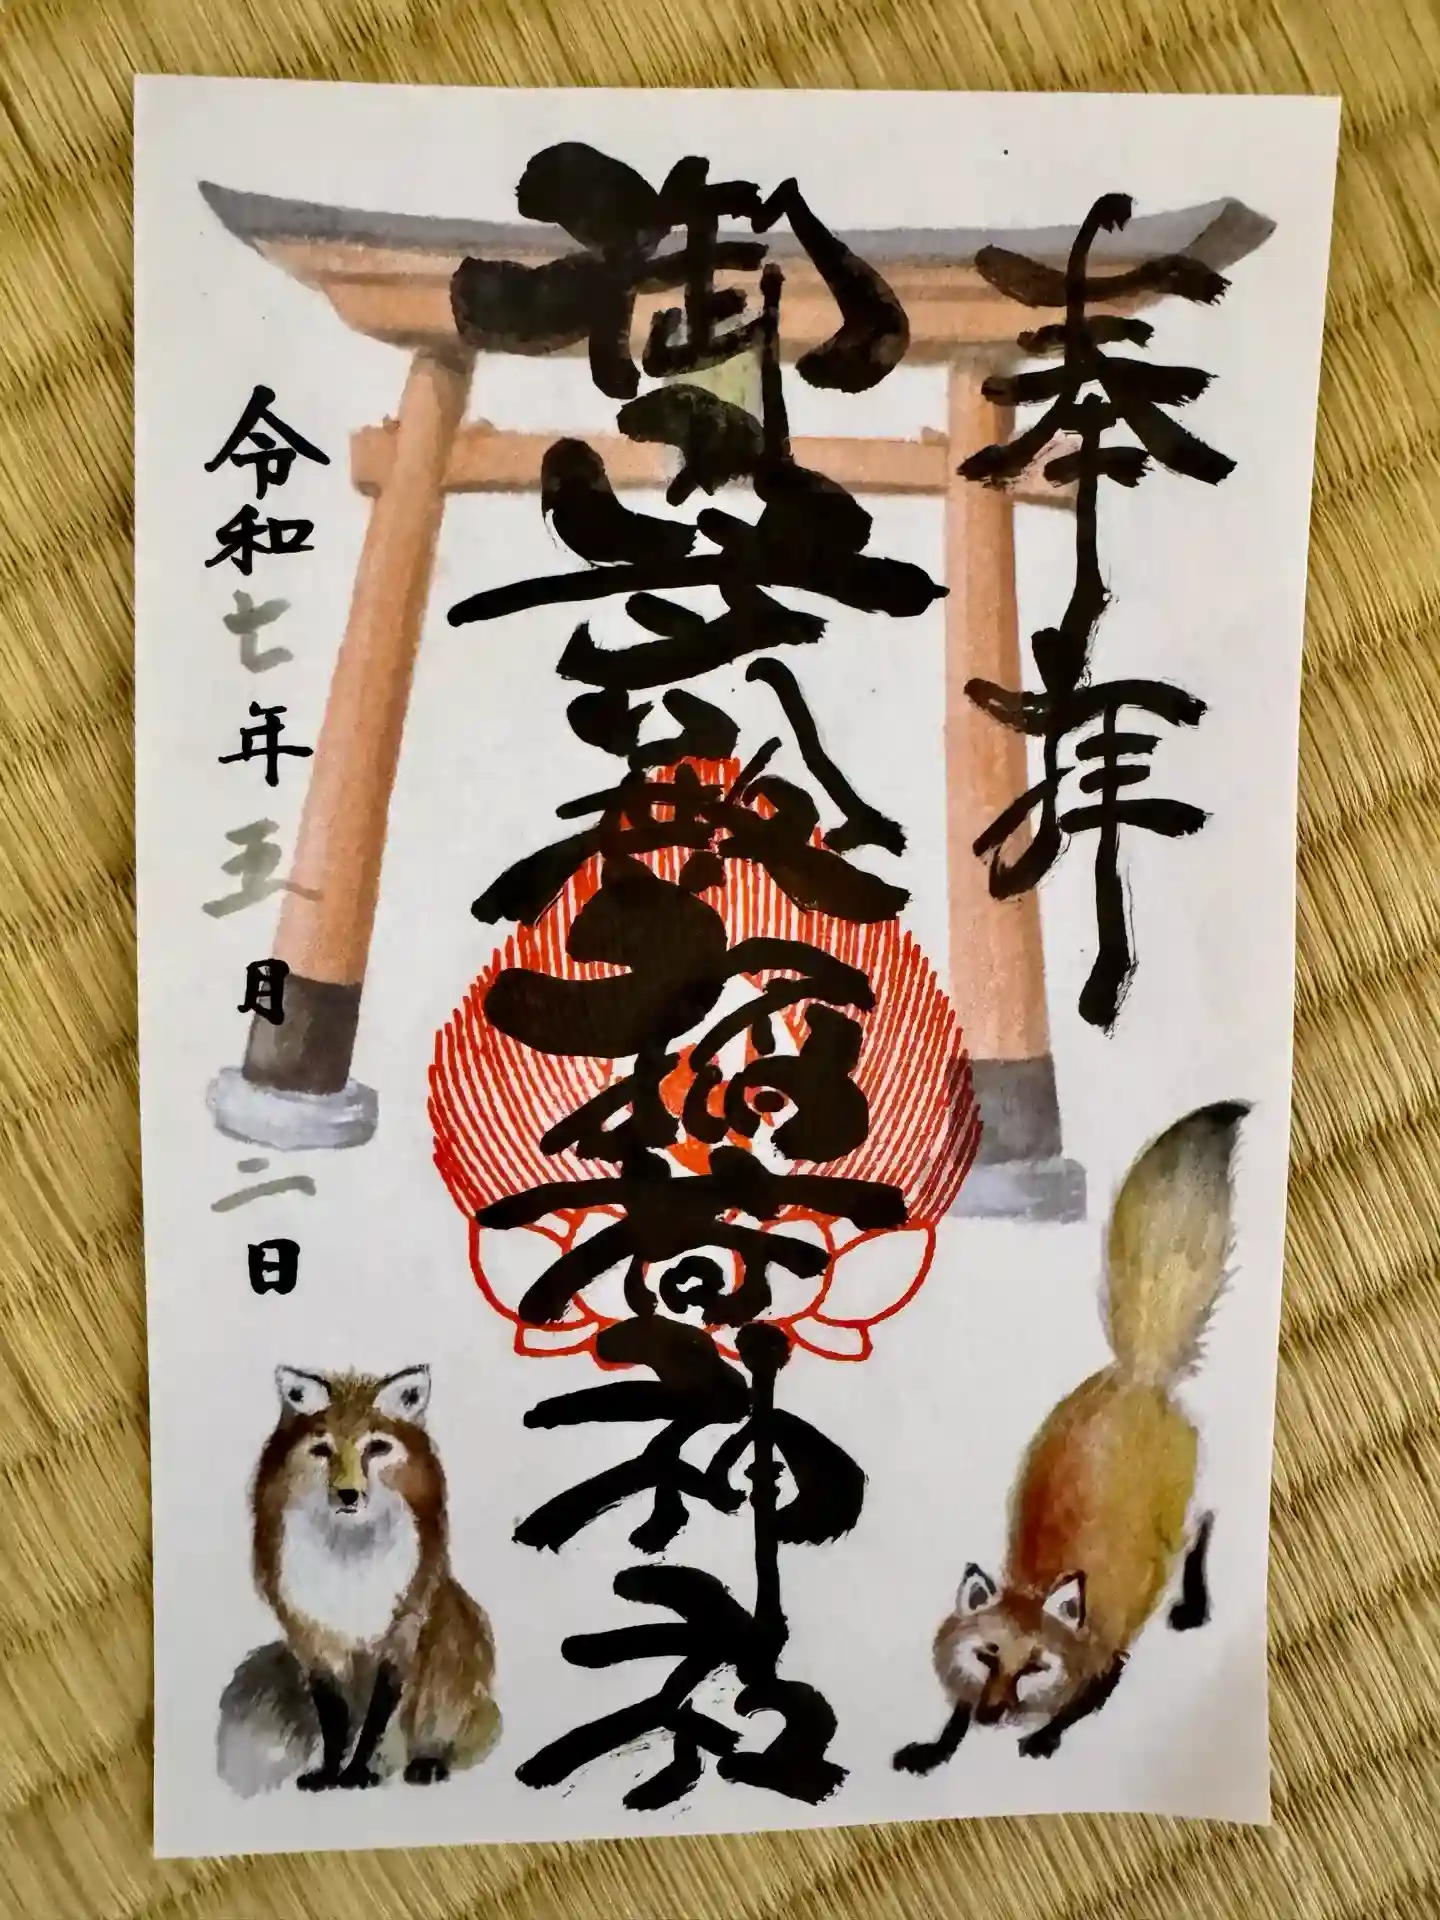 奉拝
御稲荷神社
令和七年五月二日